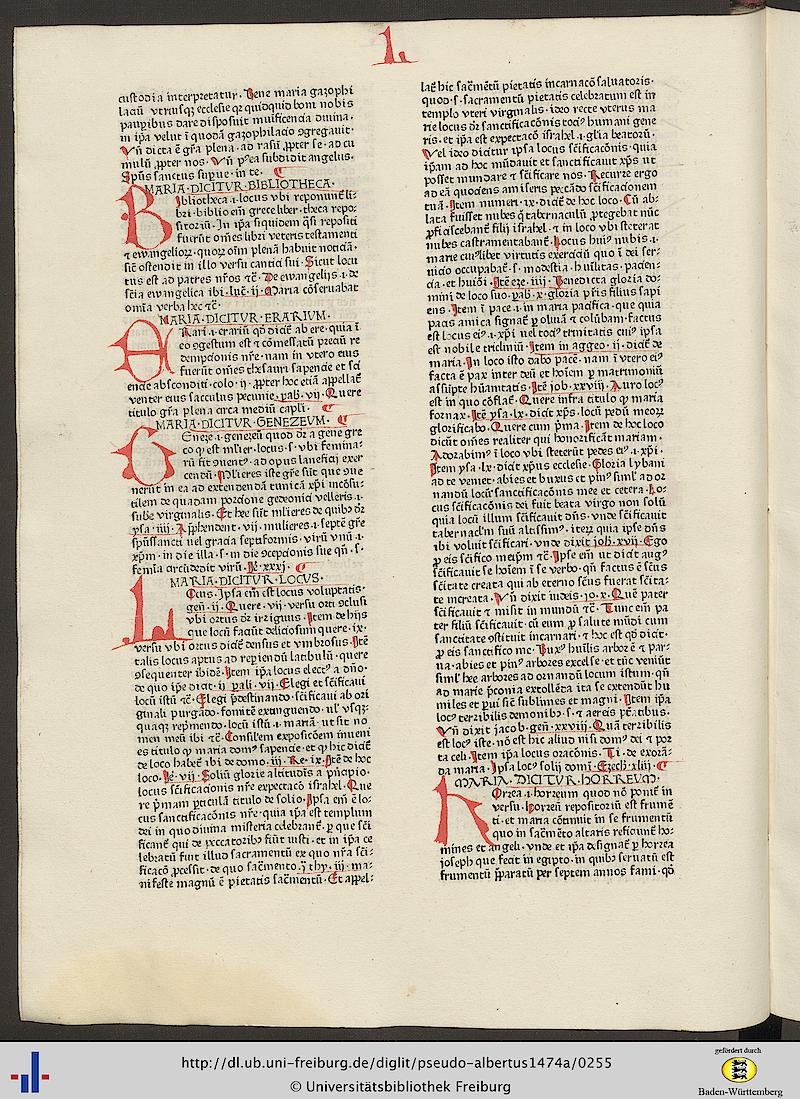 L.
custodia interpretatur. Bene maria gazophi
laciū utriusq; ecclesie qꝛ quidquid boni nobis
paupibus dare disposuit muificencia diuina.
in ip̄a velut ī quodā gazophilacio ꝯgregauit.
Vn̄ dicta ē gr̄a plena. ad rasū ꝓpter se. ad cu
mulū ꝓpter nos. Vn̄ p9ea subdidit angelus.
Sp̄us sanctus supue. in te.
MARIA.DICITVR.BIBLIOTHECA.
Bibliotheca.i.locus vbi reponunt̄ li=
bri. biblio em̄ grece liber. theca repo=
sitoriū. In ip̄a siquidem q̄si repositi
fuerūt om̄es libri veteris testamenti
⁊ ewangelioꝝ. quoꝝ oīm plenā habuit noticiā.
sic̄ ostendit in illo versu cantici sui. Sicut locu
tus est ad patres nr̄os ⁊c̄. De ewangelijs.i.de
sciā ewangelica ibi.luc̄.ij. Maria cōseruabat
omīa verba hec ⁊c̄.
MARIA.DICITVR.ERARIVM.
Erari.i.erariū qd̄ dicit̄ ab ere. quia ī
eo ꝯgestum est ⁊ cōmessatū preciū re
dempcionis nr̄e. nam in vtero eius
fuerūt om̄es thesauri sapiencie et sci
encie absconditi.colo.ij. ꝓpter hoc etiā appellat̄
venter eius sacculus pecunie.pab.vij. Quere
titulo gr̄a plena circa mediū capli.
MARIA.DICITVR.GENEZEVM.
Geneze.i.genezeū quod dr̄ a gene gre
co qꝛ est mlier.locus.s.vbi femina=
rū fit ꝯuent9. ad opus lanificij exer
cendū. Mlieres iste gr̄e sūt que ꝯue
nerūt in ea ad extendendā tunicā xp̄i incōsu=
tilem de quadam porcione gedeonici velleris.i.
sub̄e virginalis. Et hee sūt mlieres de quibꝰ dr̄
ysa.iiij. Apphendent.vij.mulieres.i.septē gr̄e
sp̄ussancti uel gracia septiformis.virū vnū.i.
xp̄m.in die illa.s.in die ꝯcepcionis sue qn̄.s.
femīa circūdedit virū.Je.xxxj.
MARIA.DICITVR.LOCVS.
Locus. Ipsa em̄ est locus voluptatis.
gen̄.ij. Quere.vij.versu orti ꝯclusi
vbi ortus dr̄ irriguus. Item de hijs
que locū faciūt deliciosum quere.ix.
versu vbi ortus dicit̄ densus et vmbrosus. Itē
talis locus aptus ad repiendū latibulū. quere
ꝯsequenter ibidē. Item ip̄a locus elect9 a dn̄o.
de quo ip̄e dicit.ij pali.vij. Elegi et sc̄ificaui
locū istū ⁊c̄. Elegi p̄destinando. sc̄ificaui ab ori
ginali purgādo. fomitē extinguendo. ul' vsq;
quaq; repmendo.locū istū.i.mariā.ut sit no
men meū ibi ⁊c̄. Consilem exposicōem inueni
es titulo qꝛ maria dom9 sapiencie.et qꝛ hic dicit̄
de loco habet̄ ibi de domo.iij.Re.ix. Itē de hoc
loco. Je.vij. Soliū glorie altitudīs a p̄ncipio.
locus sc̄ificacionis nr̄e expectacō israhel. Que
re p̄mam pticulā titulo de solio. Ipsa em̄ ē lo=
cus sanctificacōnis nr̄e. quia ip̄a est templum
dei in quo diuina misteria celebrant̄. ꝑ que sc̄i
ficant̄ qui de peccatoribꝰ fiūt iusti. et in ip̄a ce
lebratū fuit illud sacramentū ex quo nr̄a sc̄i=
ficacō ꝓcessit. de quo sac̄mento.j.thy.iij.ma=
nifeste magnū ē pietatis sac̄mentū. Et appel=
lat̄ hic sac̄mētū pietatis incarnacō saluatoris.
quod.s.sacramentū pietatis celebratum est in
templo vteri virginalis. ideo recte vterus ma
rie locus dr̄ sanctificacōnis toci9 humani gene
ris. et ip̄a est expectacō israhel.i.gl̄ia beatorū.
Vel ideo dicitur ipsa locus sc̄ificacōnis. quia
ipsam ad hoc mūdauit et sanctificauit xp̄s ut
posset mundare ⁊ sc̄ificare nos. Recurre ergo
ad eā quociens amiseris peccādo sc̄ificacionem
tuā. Item numeri.ix.dicit̄ de hoc loco. Cū ab=
lata fuisset nubes q̄ tabernaculū ꝓtegebat tūc
ꝓficiscebant̄ filij israhel. ⁊ in loco vbi steterat
nubes castrametabant̄. Locus hui9 nubis.i.
marie cui9libet virtutis exerciciū quo ī dei ser=
uicio occupabat̄.s.modestia. hūilitas. pacien=
cia. et huiōi. Itē eze.iiij. Benedicta gloria do=
mini de loco suo.pab.x. gloria pr̄is filius sapi
ens. Item ī pace.i.in maria pacifica. que quia
pacis amica signat̄ ꝑ oliuā ⁊ colūbam. factus
est locus ei9.i.xp̄i uel toci9 trinitatis cui9 ipsa
est nobile tricliniū. Item in aggeo.ij.dicit̄ de
maria. In loco isto dabo pacē. nam ī vtero ei9
facta ē pax inter deū et hoīem ꝑ matrimoniū
assūpte hūanitatis. Itē job.xxviij. Auro loc9
est in quo cōflat̄. Quere infra titulo qꝛ maria
fornax. Itē ysa.lx.dicit xp̄s. locū pedū meoꝝ
glorificabo. Quere cum p̄ma. Item de hoc loco
dicūt om̄es realiter qui honorificāt mariam.
Adorabim9 ī loco vbi steterūt pedes ei9.i.xp̄i.
Item ysa.lx.dicit xp̄us ecclesie. Gloria lybani
ad te veniet. abies et buxus et pin9 simul ad or
nandū locū sanctificacōnis mee et cetera. Lo=
cus sc̄ificacōnis dei fuit beata virgo non solū
quia locū illum sc̄ificauit dn̄s. vnde sc̄ificauit
tabernac̄lm suū altissim9. iterꝝ quia ipse dn̄s
ibi voluit sc̄ificari. vnde dixit joh.xvij. Ego
ꝑ eis sc̄ifico meip̄m ⁊c̄. Ipse em̄ ut dicit aug9
sc̄ificauit se hoīem ī se verbo. qn̄ factus ē sc̄us
sc̄itate creata qui ab eterno sc̄us fuerat sc̄ita=
te increata. Vn̄ dixit iudeis.jo.x. Quē pater
sc̄ificauit ⁊ misit in mundū ⁊c̄. Tunc em̄ pa
ter filiū sc̄ificauit. cū eum ꝑ salute mūdi cum
sanctitate ꝯstituit incarnari. ⁊ hoc est qd̄ dicit.
ꝑ eis sanctifico me. Bux9 hūilis arbor ē ⁊ par=
ua. abies et pin9 arbores excelse. et tn̄c veniūt
siml' hee arbores ad ornandū locum istum. qn̄
ad marie p̄conia extollēda ita se extendūt hu
miles et pui sic̄ sublimes et magni. Item ip̄a
loc9 terribilis demonibꝰ.s.⁊ aereis pt̄atibus.
Vn̄ dixit jacob.gen̄.xxviij. Quā terribilis
est loc9 iste. nō est hic aliud nisi dom9 dei ⁊ por
ta celi. Item ip̄a locus oracōnis.Ti.de exorā=
da maria. Ipsa loc9 solij domī. Ezech.xliij.
MARIA.DICITVR.HORREVM.
Horrea.i.horreum quod nō ponit̄ in
versu. Horreū repositoriū est frumē
ti. et maria cōtinuit in se frumentū
quo in sac̄mēto altaris reficiunt̄ ho=
mines et angeli. vnde et ip̄a designat̄ ꝑ horrea
joseph que fecit in egipto. in quibꝰ seruatū est
frumentū p̄paratū per septem annos fami. qd̄
http://dl.ub.uni-freiburg.de/diglit/pseudo-albertus1474a/0255
© Universitätsbibliothek Freiburg
gefördert durch
Baden-Württemberg